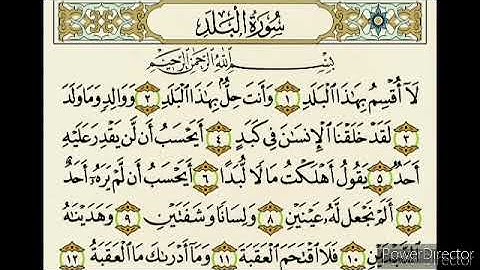 سُورَةُ الْبَلَدِ
بِسْمِ اللَّهِ الرَّحْمَٰنِ الرَّحِيمِ
لَآ أُقْسِمُ بِهَٰذَا ٱلْبَلَدِ ١ وَأَنتَ حِلُّۢ بِهَٰذَا ٱلْبَلَدِ ٢ وَوَالِدٍ وَمَا وَلَدَ
٣ لَقَدْ خَلَقْنَا ٱلْإِنسَٰنَ فِى كَبَدٍ ٤ أَيَحْسَبُ أَن لَّن يَقْدِرَ عَلَيْهِ
أَحَدٌ ٥ يَقُولُ أَهْلَكْتُ مَالًا لُّبَدًا ٦ أَيَحْسَبُ أَن لَّمْ يَرَهُۥٓ أَحَدٌ
٧ أَلَمْ نَجْعَل لَّهُۥ عَيْنَيْنِ ٨ وَلِسَانًا وَشَفَتَيْنِ ٩ وَهَدَيْنَٰهُ
١٠ فَلَا ٱقْتَحَمَ ٱلْعَقَبَةَ ١١ وَمَآ أَدْرَىٰكَ مَا ٱلْعَقَبَةُ ١٢
PowerDirector